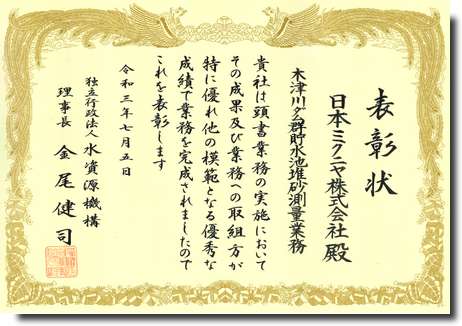 表彰状
日本ミクニヤ株式会社 殿
木津川ダム群貯水池堆砂測量業務
貴社は頭書業務の実施において
その成果及び業務への取組方が
特に優れ他の模範となる優秀な
成績で業務を完成されましたので
これを表彰します
令和三年七月五日
独立行政法人 水資源機構
理事長 金尾健司